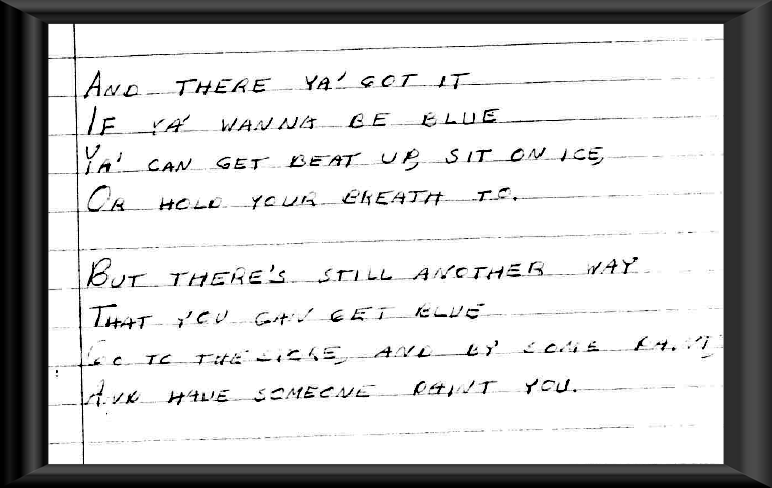 AND THERE YA' GOT IT
IF YA' WANNA BE BLUE
YA' CAN GET BEAT UP, SIT ON ICE,
OR HOLD YOUR BREATH TO.
BUT THERE'S STILL ANOTHER WAY
THAT YOU CAN GET BLUE
GO TO THE STORE, AND BY SOME PAINT,
AND HAVE SOMEONE PAINT YOU.